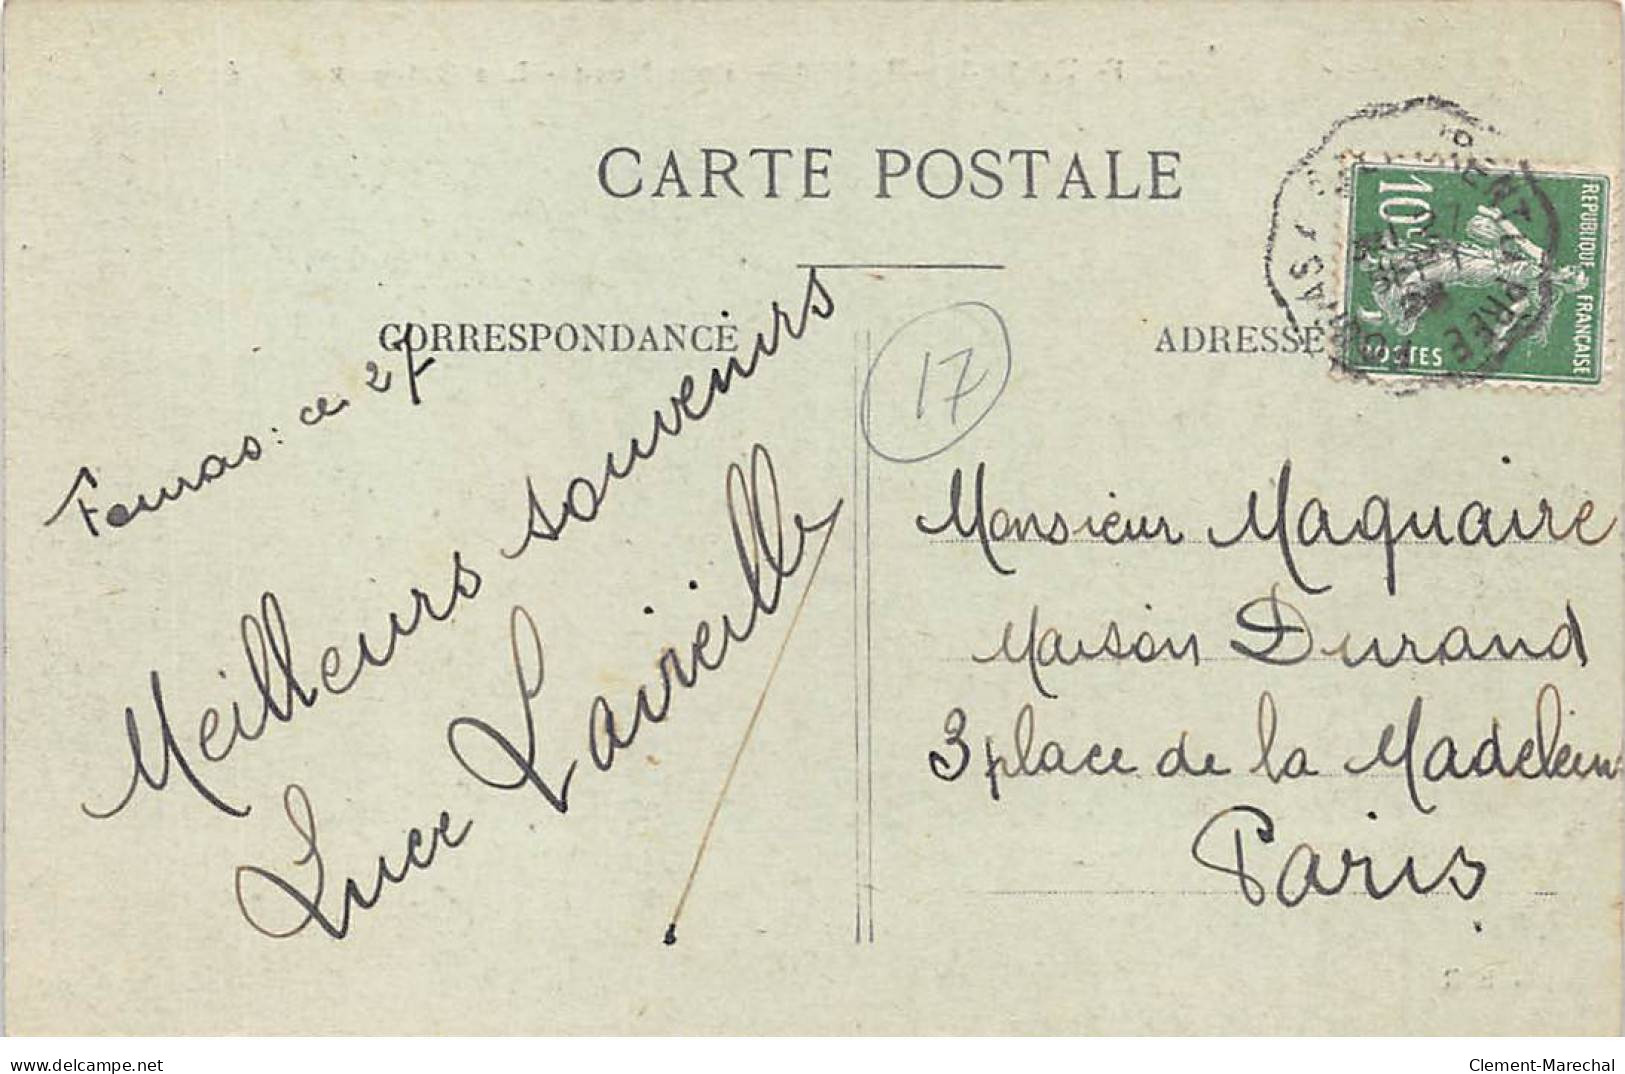 CARTE POSTALE
CORRESPONDANCE
ADRESSE
REPUBLIQUE FRANCAISE
10c
POSTES
17
Fouras: ce 27
Meilleurs souvenirs
Luce Laireille
Monsieur Maquaire
Maison Durand
3 place de la Madelein
Paris.
delcampe.net
Clement-Marechal